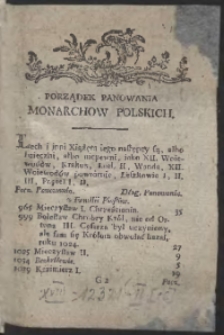 PORZĄDEK PANOWANIA
MONARCHOW POLSKICH.
Lech i inni Xiążęta iego następcy są, albo
baieczni, albo niepewni, iako XII. Woie-
wodów, Krakus, Wanda, XII.
Woiewodów powtórnie, Leszkowie I, II,
III, Popiel I, II.
Pocz. Panowania. Dług. Panowania.
z Familii Piastów.
965 Mieczysław I. Chrześcianin. 35
999 Bolesław Chrobry Król, nie od Ot-
tona III. Cesarza był uczyniony,
ale sam się Królem obwołać kazał,
roku 1024. 27
1025 Mieczysław II. 9
1034 Bezkrólewie. 5
1039 Kazimierz I. 19
G 2 Pocz.
XVIII-12321-II